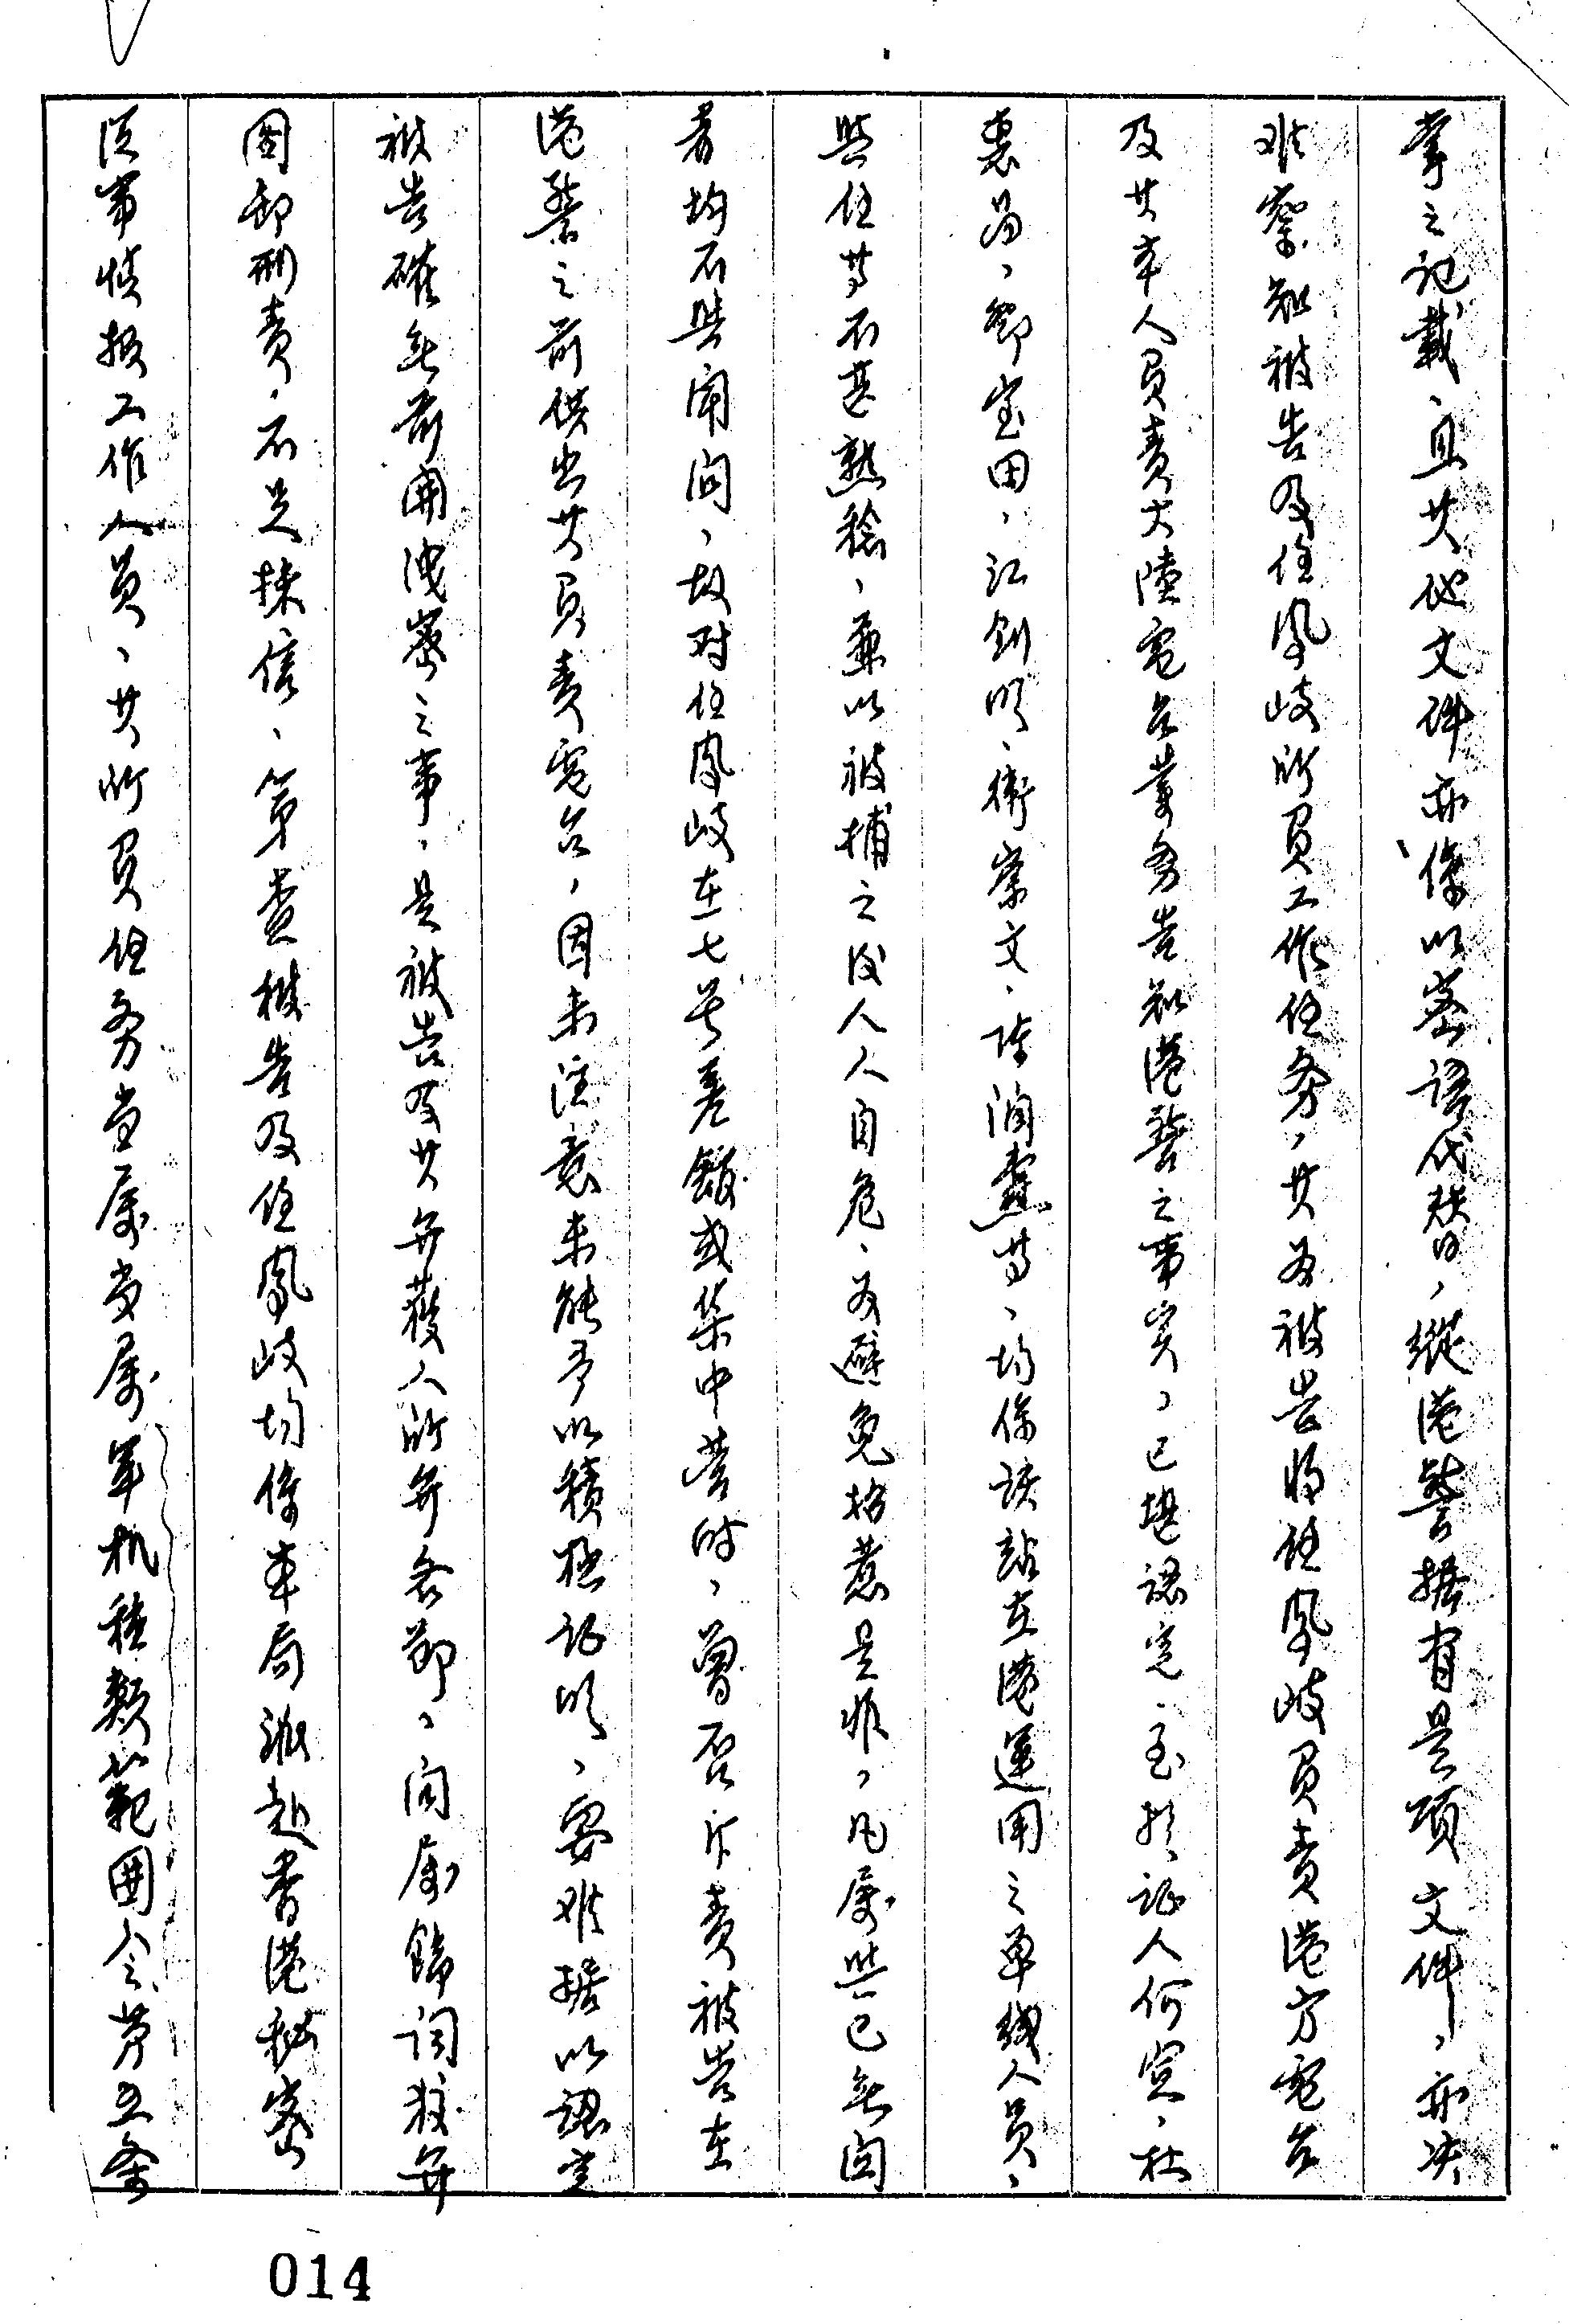 掌之记载、且其他文件亦係以密語代替，縱港警搭有是項文件，亦决
难察知被告及任鳳岐所負工作任务，其為被告將任鳳岐負責港方電台
及其本人負責大陸電台業务告知港警之事实，已堪認定、至於证人何宜，杜
鄧宝田，江剑明、衛崇文、陈润霖等、均係該站在港運用之单线人員，
與任等不甚熟稔，兼以被捕之後人人自危、為避免招惹是非，凡屬與己無関
者均不與聞问，故对任鳳岐在七号差館或集中营時，曾否斥責被告在
港警之前供出其負責電台，因未注意未能予以積極证明、要难据以認定
被告確無前開洩密之事，是被告及其辯護人所辯各節，洵屬飾词狡辯
圖卸刑責，不足採信、第查被告及任鳳岐均係本局派赴香港秘密
從事情报工作人員，其所負任务当属当属軍机種類範囲令第五条
014